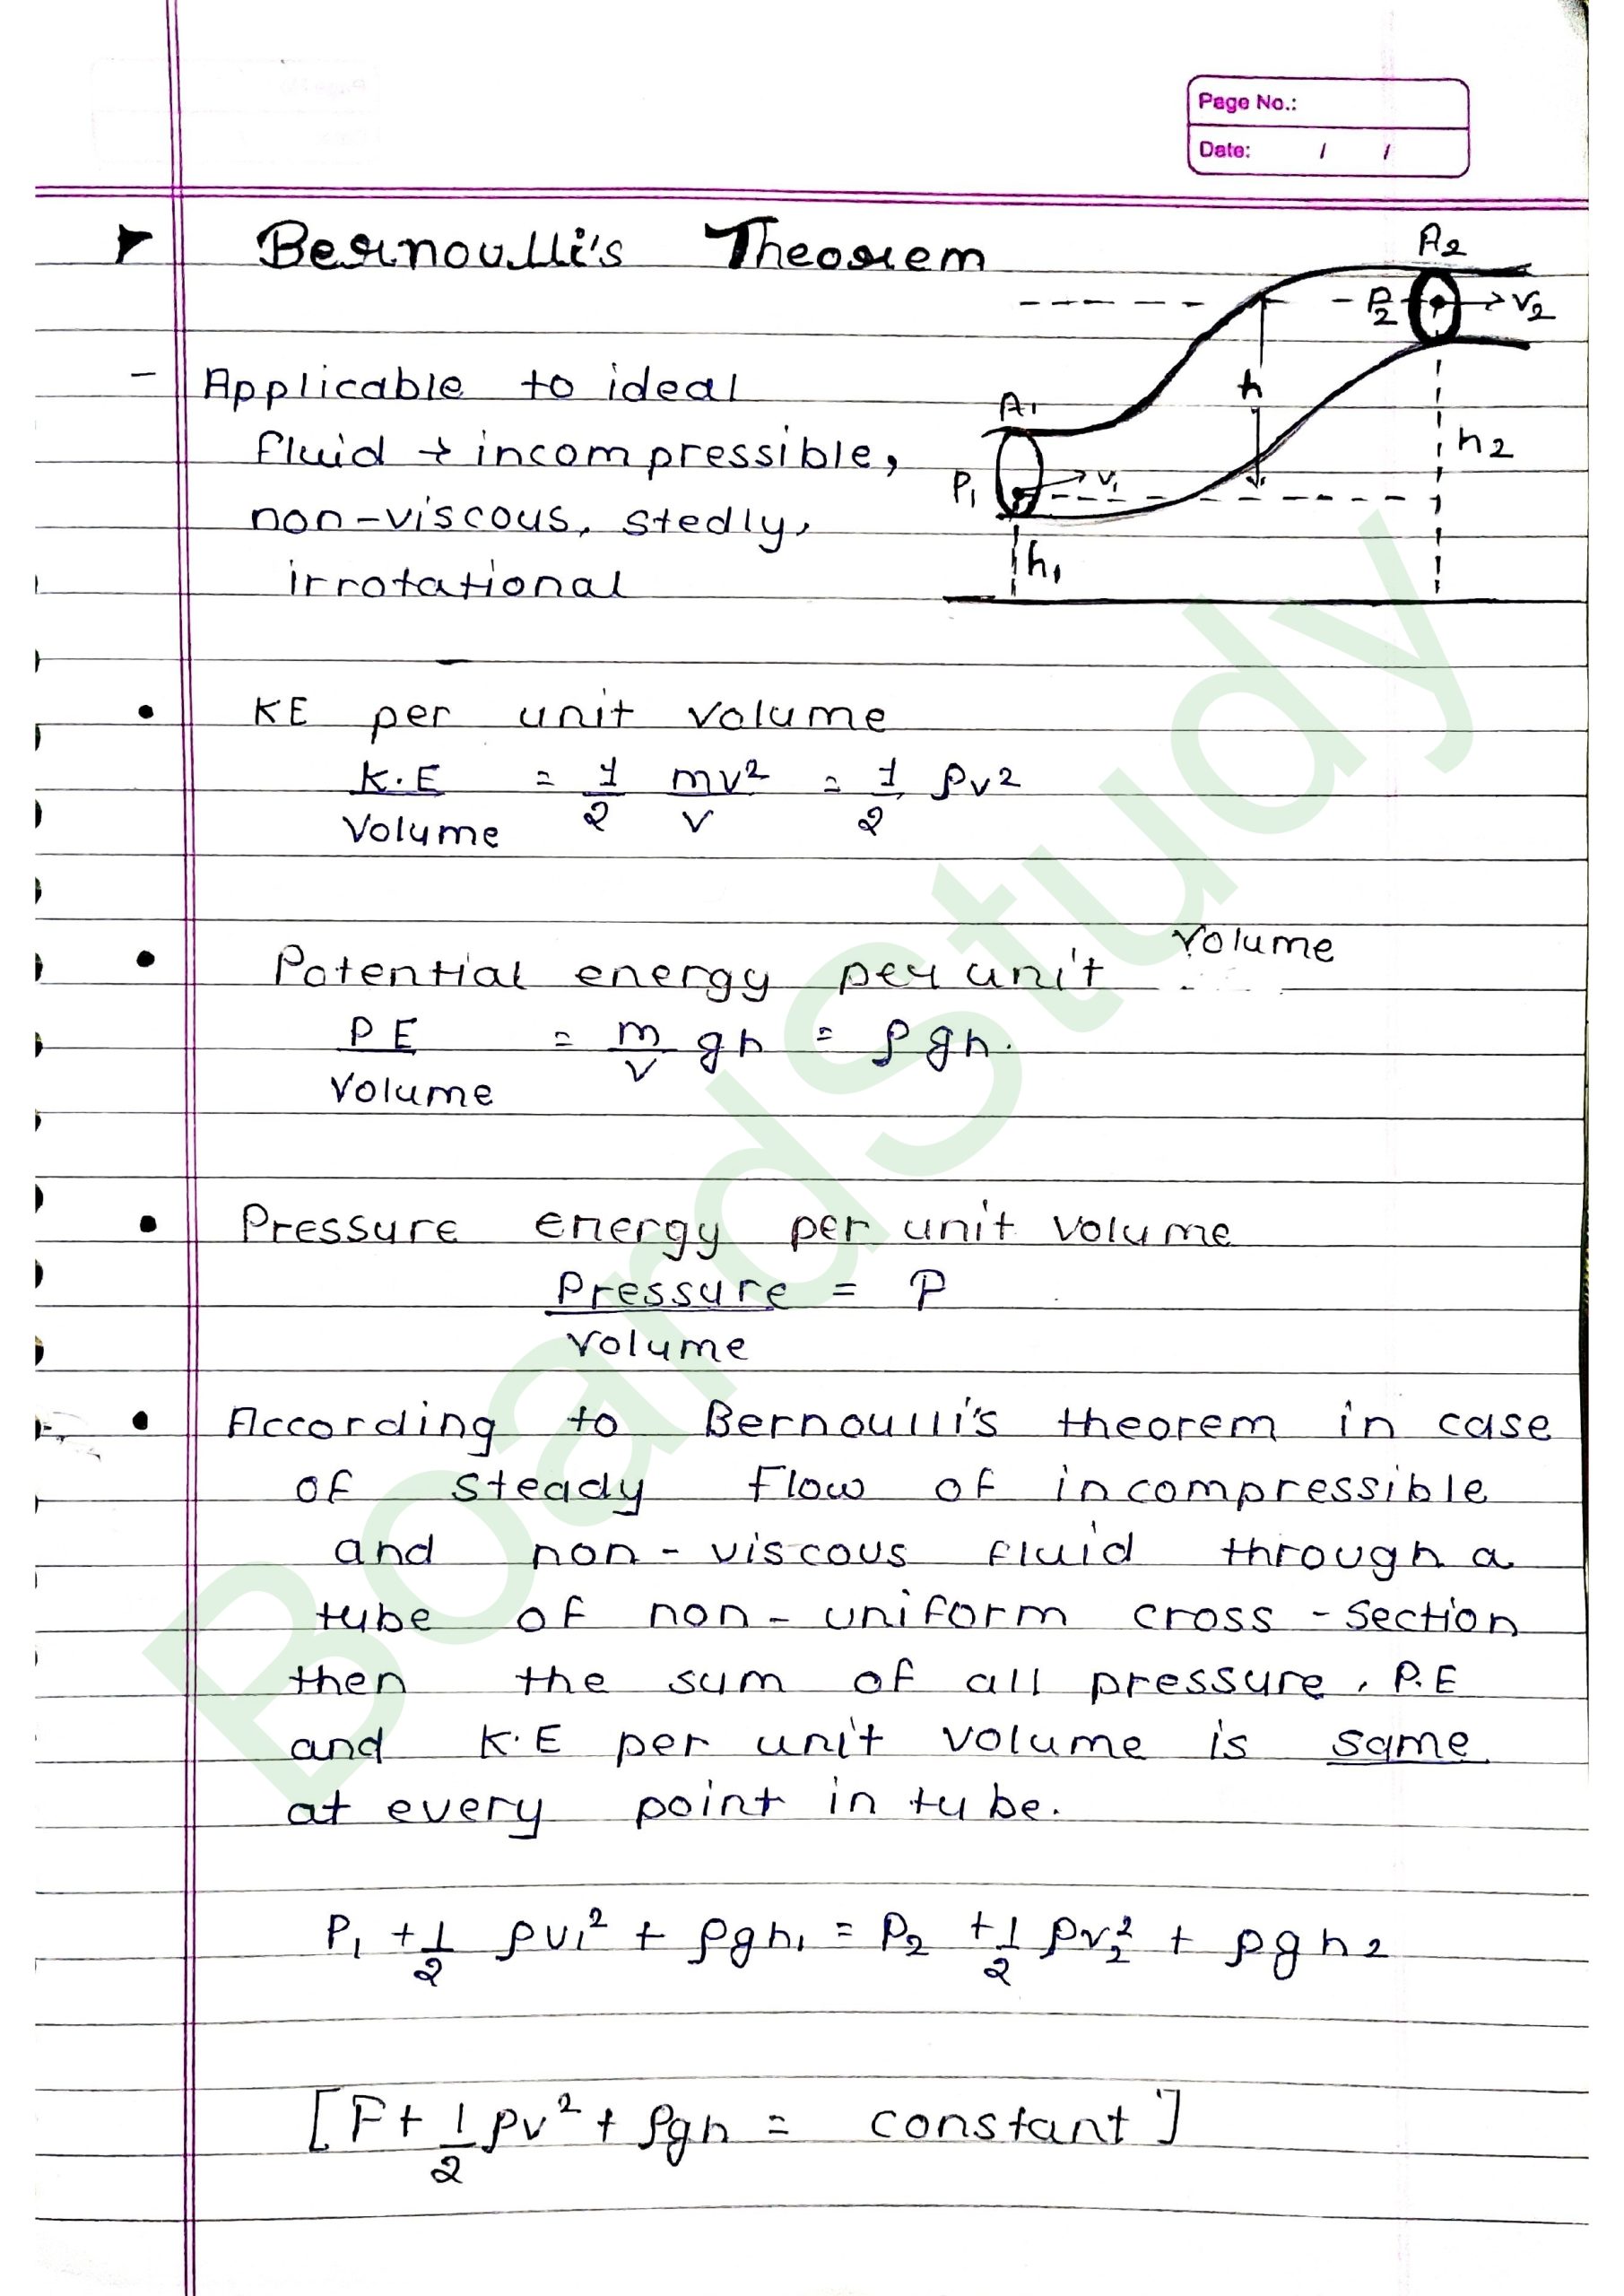 Page No.:
Date: / /
Bernoulli's Theorem
A2
P2 → v2
- Applicable to ideal
h
A1
fluid → incompressible,
h2
P1 → v1
non-viscous, stedly,
h1
irrotational
• KE per unit volume
K.E/Volume = 1/2 mv²/v = 1/2 ρv²
• Potential energy per unit volume
PE/Volume = m/v gh = ρgh.
• Pressure energy per unit volume
Pressure/Volume = P
• According to Bernoulli's theorem in case
of steady flow of incompressible
and non-viscous fluid through a
tube of non-uniform cross-section
then the sum of all pressure, P.E
and K.E per unit volume is same
at every point in tube.
P1 + 1/2 ρv1² + ρgh1 = P2 + 1/2 ρv2² + ρgh2
[P + 1/2 ρv² + ρgh = constant]
BoardStudy